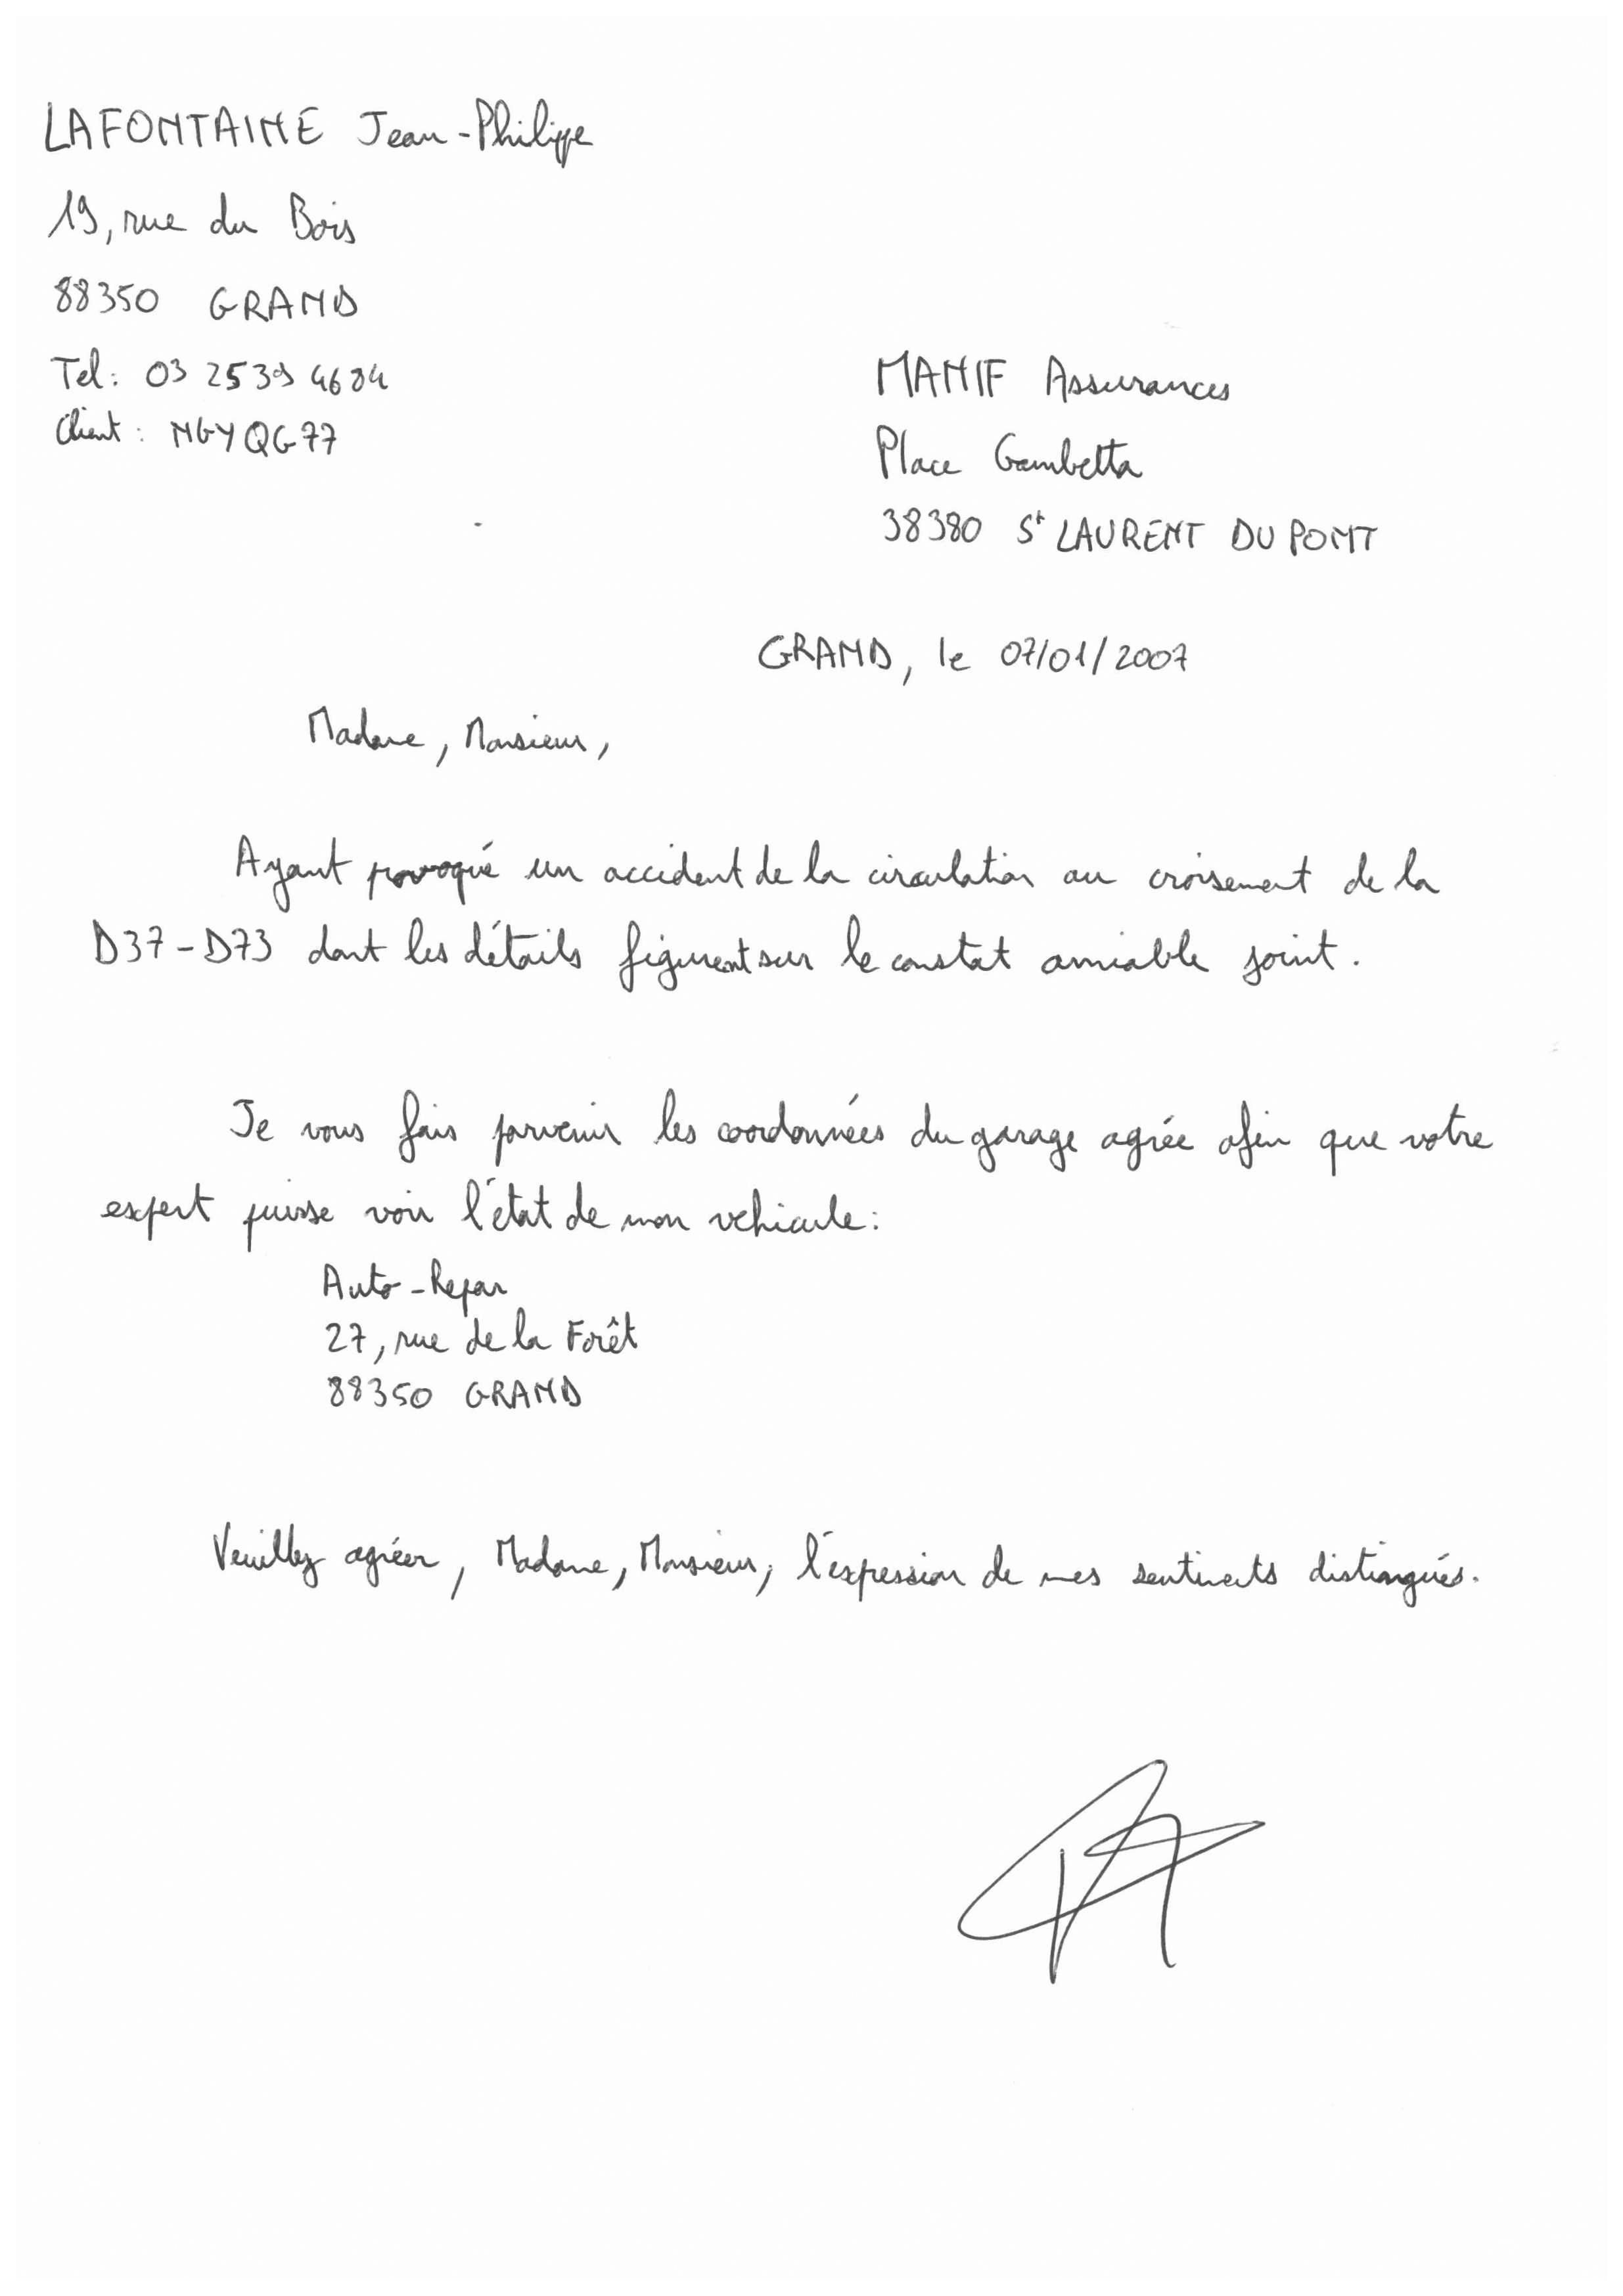 LAFONTAINE Jean-Philippe
19, rue du Bois
88350 GRAND
Tel: 03 25 39 46 84
Client: NGYQG77
MANIF Assurances
Place Gambetta
38380 St LAURENT DU PONT
GRAND, le 07/01/2007
Madame, Monsieur,
Ayant provoqué un accident de la circulation au croisement de la
D37-D73 dont les détails figurent sur le constat amiable joint.
Je vous fais parvenir les coordonnées du garage agrée afin que votre
expert puisse voir l'état de mon vehicule:
Auto-Repar
27, rue de la Forêt
88350 GRAND
Veuillez agréer, Madame, Monsieur, l'expression de mes sentiments distingués.